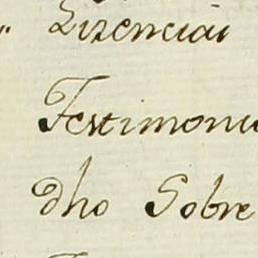 Lizenciai
Testimonio
dho Sobre